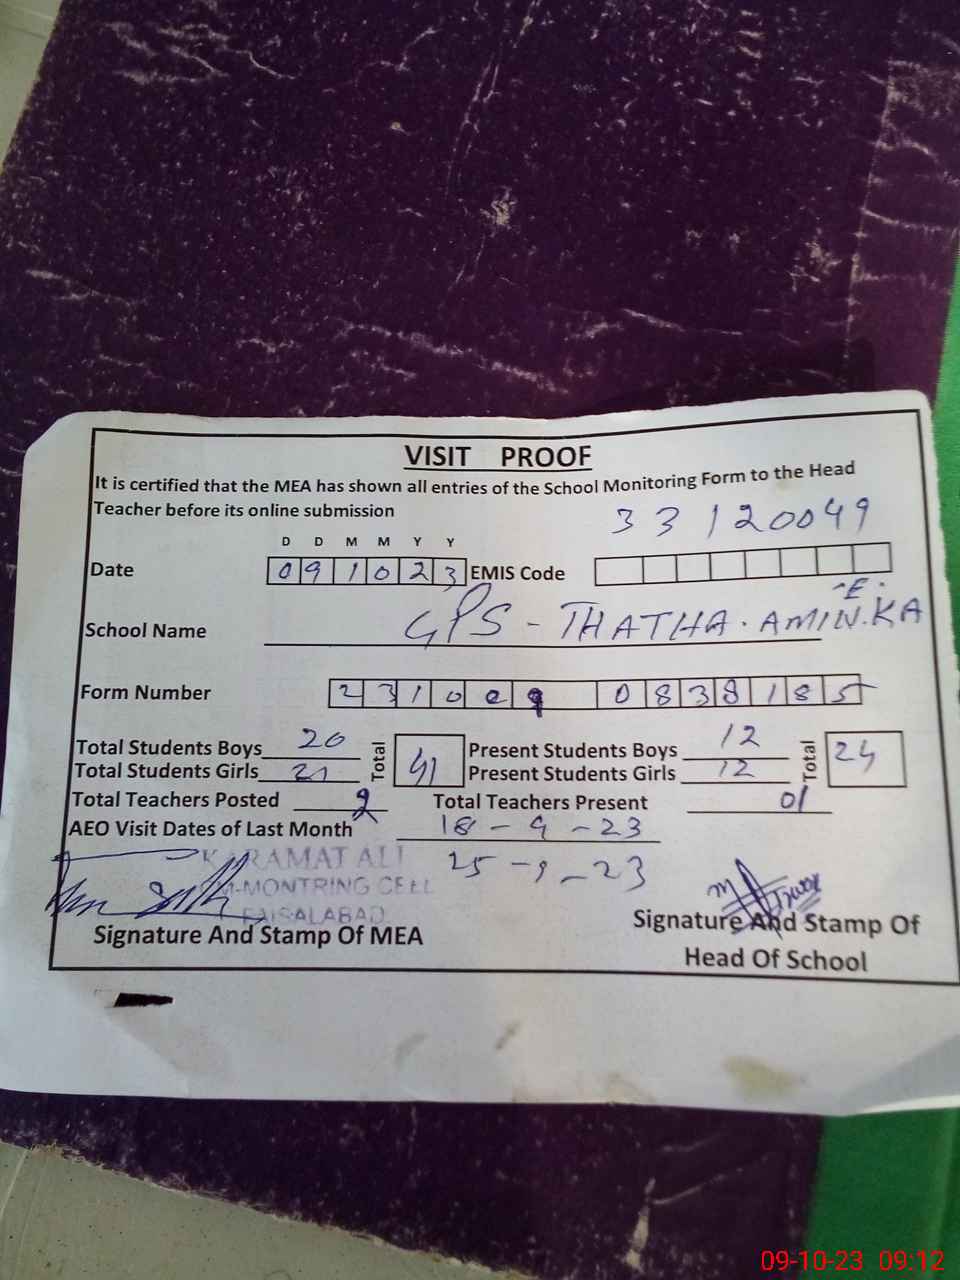 VISIT PROOF
It is certified that the MEA has shown all entries of the School Monitoring Form to the Head
Teacher before its online submission
33120049
D D M M Y Y
Date 091023 EMIS Code
School Name GPS - THATHA. AMIN.KA
E.
Form Number 231009 0838185
Total Students Boys 20 Total 41 Present Students Boys 12 Total 24
Total Students Girls 21 Present Students Girls 12
Total Teachers Posted 2 Total Teachers Present 01
AEO Visit Dates of Last Month 18-9-23
25-9-23
KARAMAT ALI
M-MONTRING CELL
FAISALABAD.
Signature And Stamp Of MEA
Signature And Stamp Of
Head Of School
09-10-23 09:12